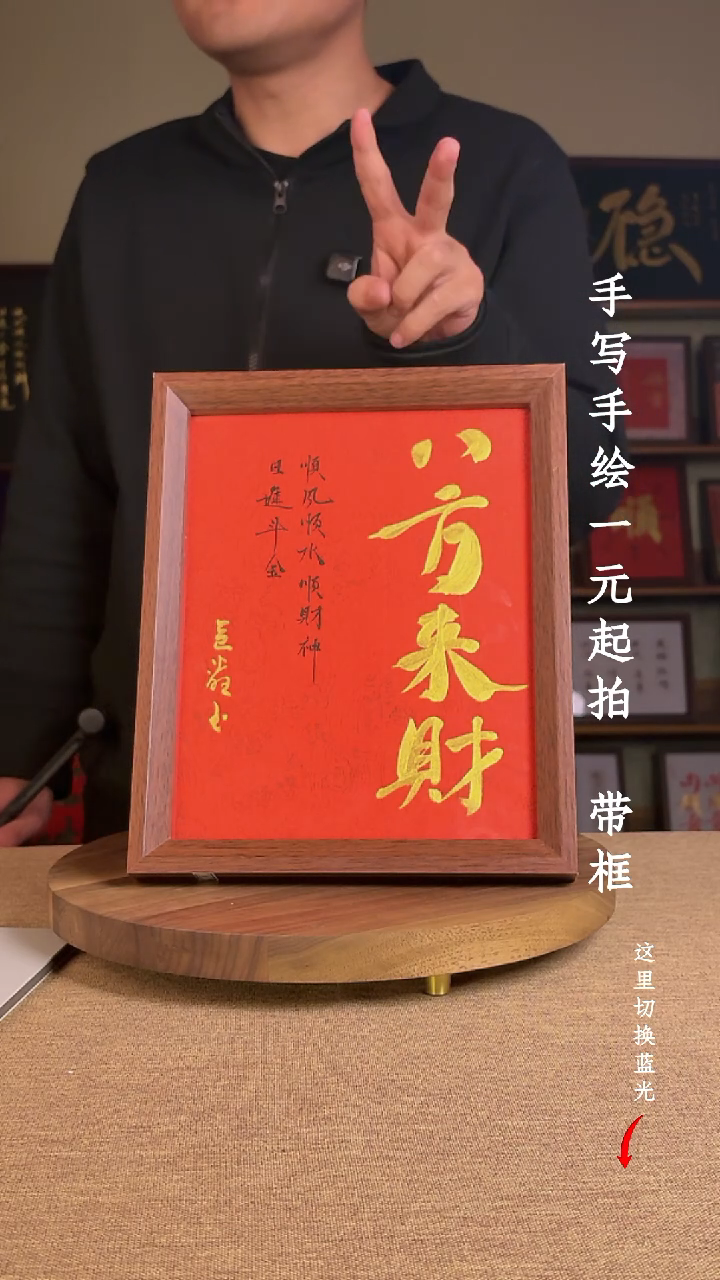 八方来財
順风顺水顺財神
日進斗金
手写手绘一元起拍 带框
这里切换蓝光
稳
順